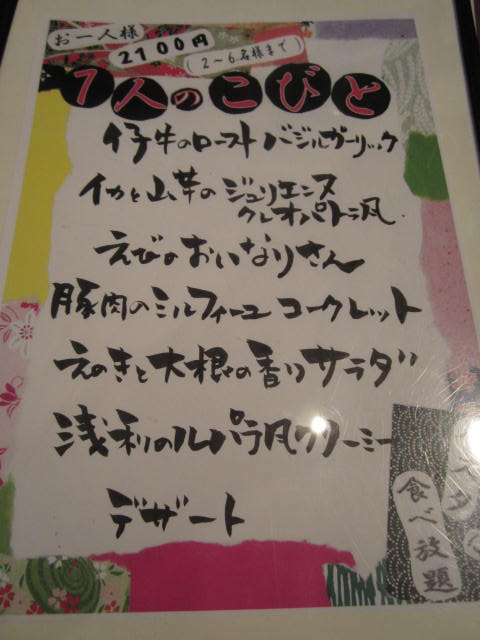 お一人様
2100円
(2〜6名様まで)
7人のこびと
仔牛のロースト バジルガーリック
イカと山芋のジュリエンヌ
クレオパトラ風
えびのおいなりさん
豚肉のミルフィーユ コークレット
えのきと大根の香りサラダ
浅利のルパラ風クリーミー
デザート
食べ放題